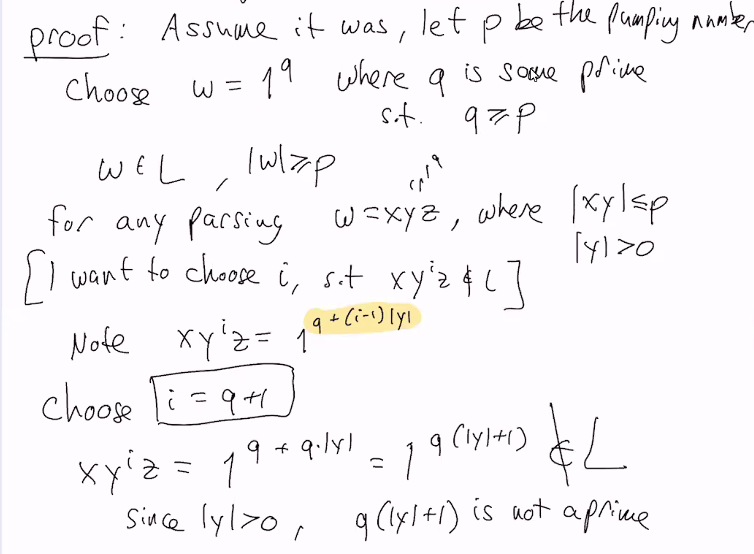 proof: Assume it was, let p be the pumping number
Choose w = 1^q where q is some prime
s.t. q ≥ p
w ∈ L, |w| ≥ p
for any parsing w = xyz, where |xy| ≤ p
|y| > 0
[I want to choose i, s.t xy^i z ∉ L]
Note xy^i z = 1^{q + (i-1)|y|}
Choose i = q+1
xy^i z = 1^{q + q·|y|} = 1^{q(|y|+1)} ∉ L
since |y| > 0, q(|y|+1) is not a prime